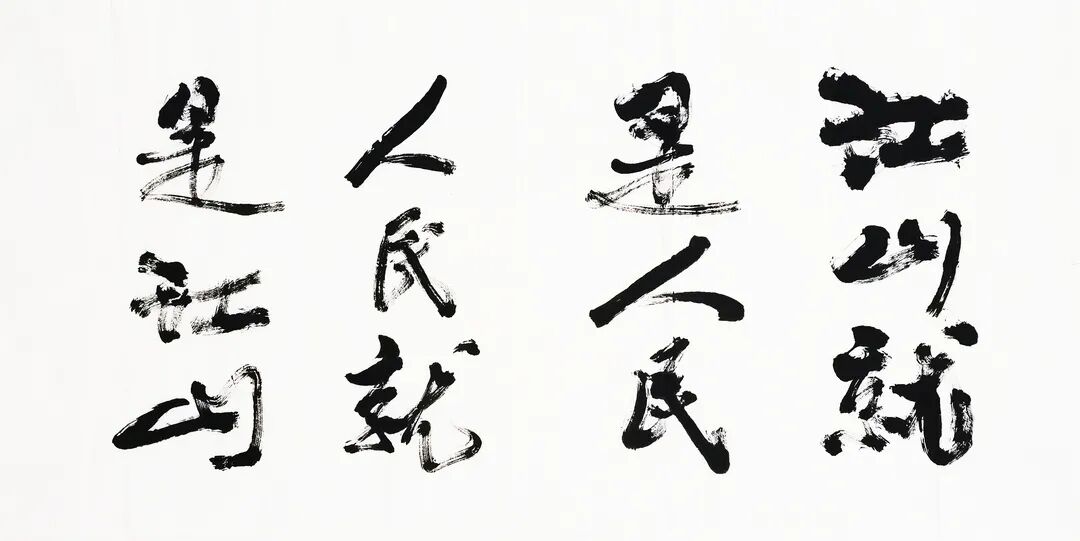 江山就
是人民
人民就
是江山